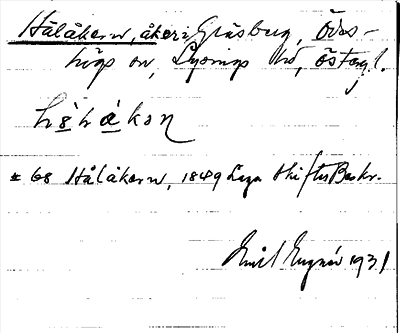 Hålåkern, åker i Gräsberg, Ödes-
högs sn, Lysings hd, Östergl.
hålåkon
* 68 Hålåkern, 1849 Laga Skiftes Beskr.
Emil 1931